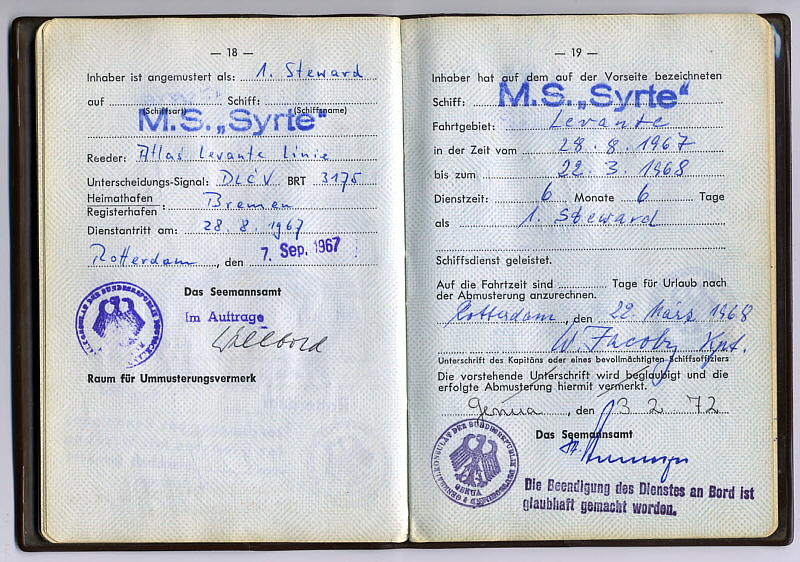 — 18 —
Inhaber ist angemustert als: 1. Steward
auf Schiff:
(Schiffsart) (Schiffsname)
M.S. „Syrte“
Reeder: Atlas Levante Linie
Unterscheidungs-Signal: DLCV BRT 3175
Heimathafen
Registerhafen : Bremen
Dienstantritt am: 28. 8. 1967
Rotterdam, den 7. Sep. 1967
Das Seemannsamt
Im Auftrage
Raum für Ummusterungsvermerk
— 19 —
Inhaber hat auf dem auf der Vorseite bezeichneten
Schiff: M.S. „Syrte“
Fahrtgebiet: Levante
in der Zeit vom 28. 8. 1967
bis zum 22. 3. 1968
Dienstzeit: 6 Monate 6 Tage
als 1. Steward
Schiffsdienst geleistet.
Auf die Fahrtzeit sind Tage für Urlaub nach
der Abmusterung anzurechnen.
Rotterdam, den 22. März 1968
W. Jacoby Kpt.
Unterschrift des Kapitäns oder eines bevollmächtigten Schiffsoffiziers
Die vorstehende Unterschrift wird beglaubigt und die
erfolgte Abmusterung hiermit vermerkt.
Genua, den 3 2 72
Das Seemannsamt
GENERALKONSULAT DER BUNDESREPUBLIK DEUTSCHLAND
GENUA
Die Beendigung des Dienstes an Bord ist
glaubhaft gemacht worden.